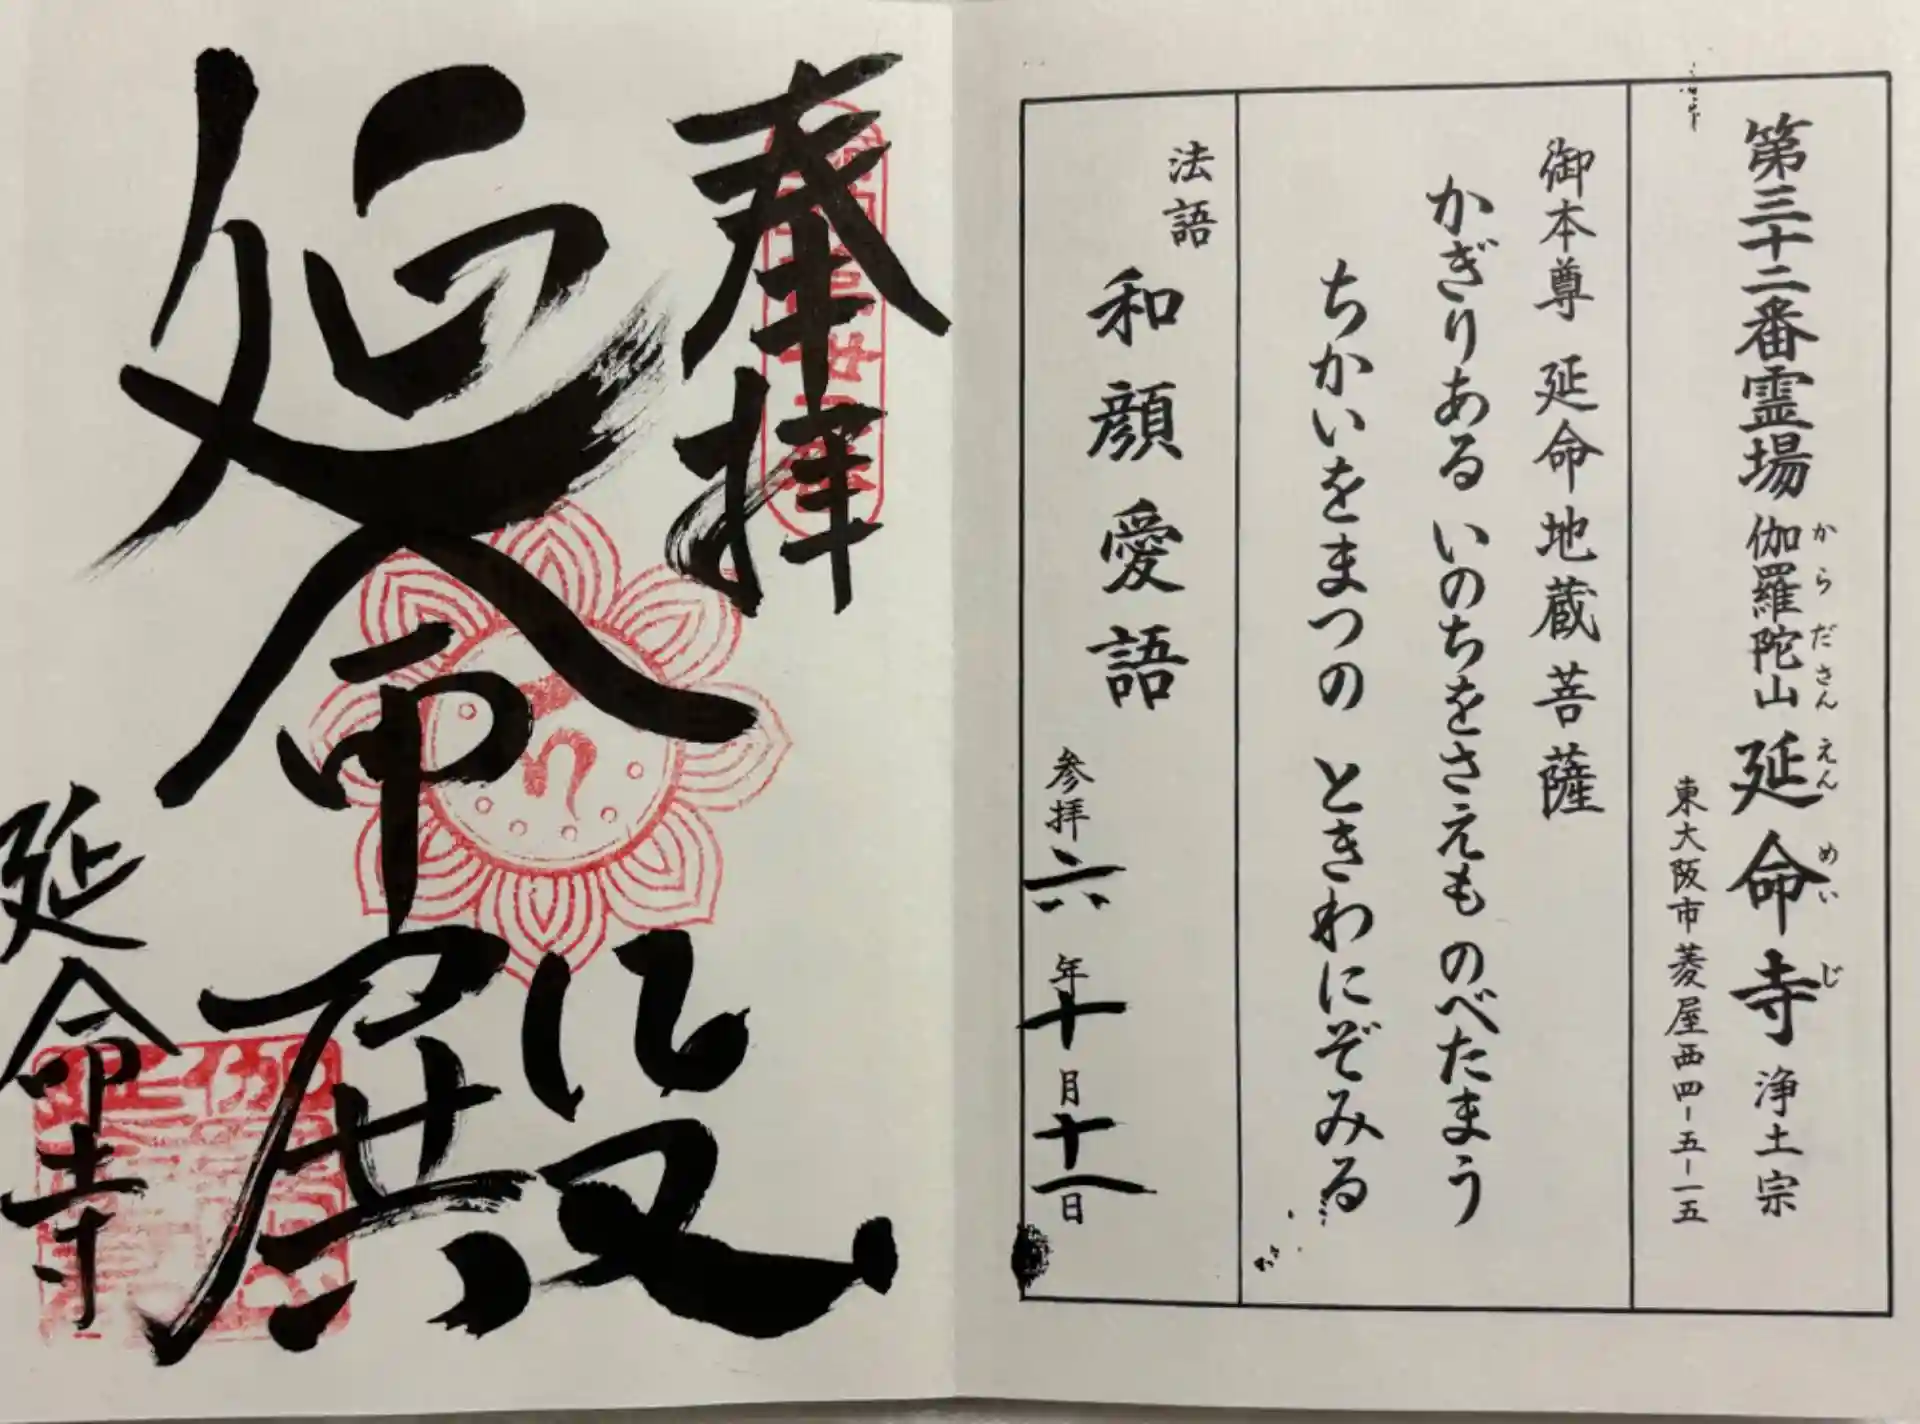 第三十二番霊場 伽羅陀山 延命寺 浄土宗
からださん えんめいじ
東大阪市菱屋西四-五-一五
御本尊 延命地蔵菩薩
かぎりある いのちをさえも のべたまう
ちかいをまつの ときわにぞみる
法語
和顔愛語
参拝 六年十月十一日
奉拝
延命殿
延命寺